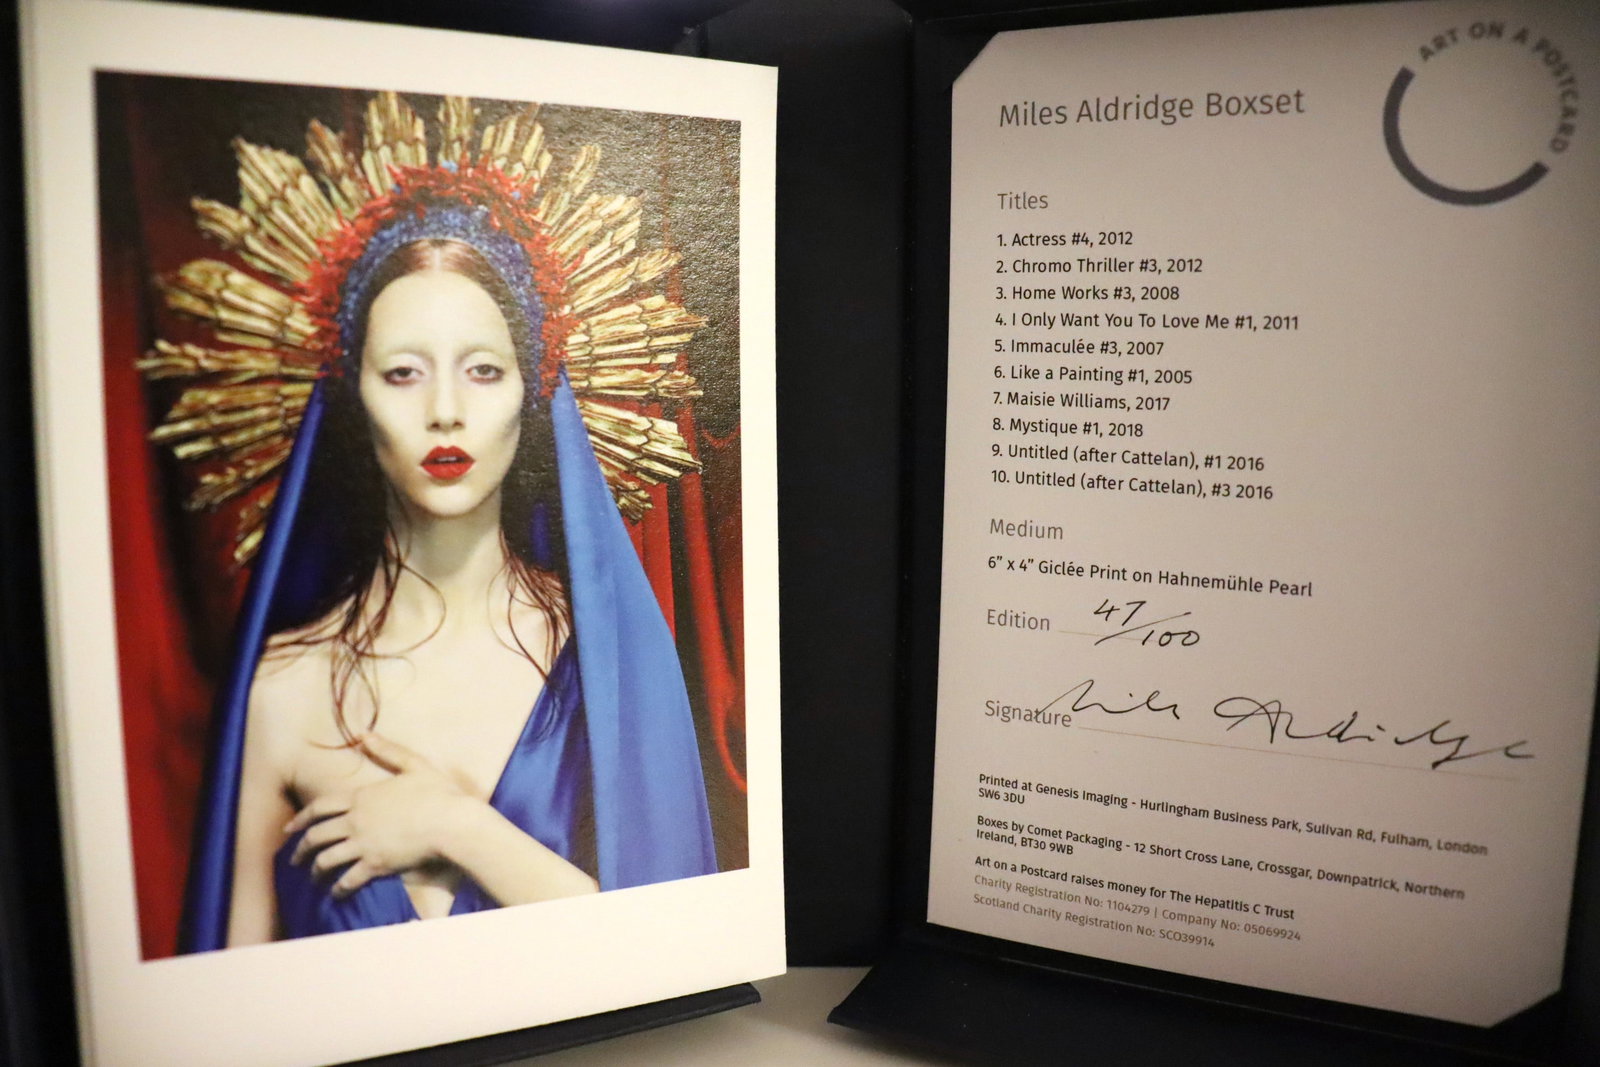 ART ON A POSTCARD
Miles Aldridge Boxset
Titles
1. Actress #4, 2012
2. Chromo Thriller #3, 2012
3. Home Works #3, 2008
4. I Only Want You To Love Me #1, 2011
5. Immaculée #3, 2007
6. Like a Painting #1, 2005
7. Maisie Williams, 2017
8. Mystique #1, 2018
9. Untitled (after Cattelan), #1 2016
10. Untitled (after Cattelan), #3 2016
Medium
6” x 4” Giclée Print on Hahnemühle Pearl
Edition 47/100
Signature Miles Aldridge
Printed at Genesis Imaging - Hurlingham Business Park, Sulivan Rd, Fulham, London
SW6 3DU
Boxes by Comet Packaging - 12 Short Cross Lane, Crossgar, Downpatrick, Northern
Ireland, BT30 9WB
Art on a Postcard raises money for The Hepatitis C Trust
Charity Registration No: 1104279 | Company No: 05069924
Scotland Charity Registration No: SCO39914